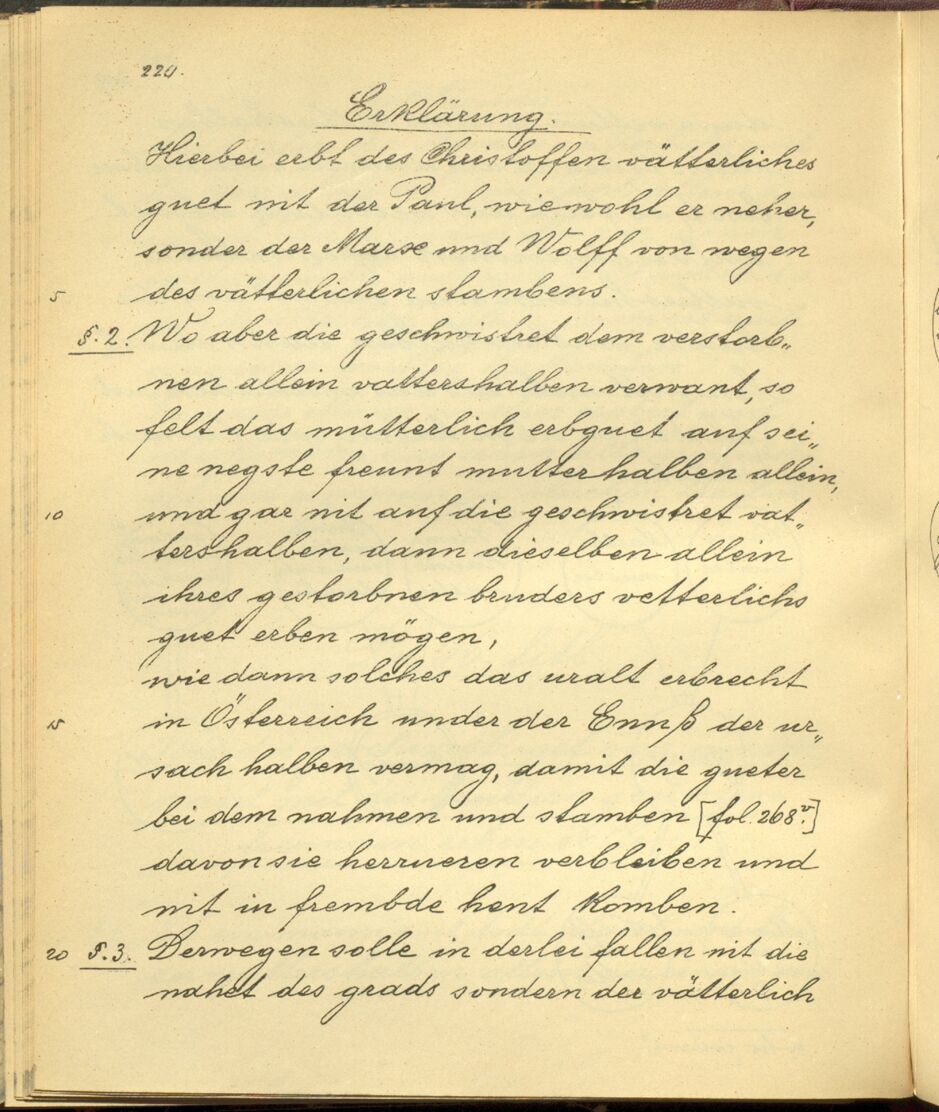 220.
Erklärung.
Hierbei erbt des Christoffen vätterliches
guet nit der Paul, wiewohl er neher,
sonder der Marxe und Wolff von wegen
5 des vätterlichen stambens.
§. 2. Wo aber die geschwistret dem verstorb„
nen allein vattershalben verwant, so
felt das mütterlich erbguet auf sei„
ne negste freunt mutterhalben allein,
10 und gar nit auf die geschwistret vat„
tershalben, dann dieselben allein
ihres gestorbnen bruders vetterlichs
guet erben mögen,
wie dann solches das uralt erbrecht
15 in Österreich under der Ennß der ur„
sach halben vermag, damit die gueter
bei dem nahmen und stamben [fol. 268v.]
davon sie herrueren verbleiben und
nit in frembde hent komben.
20 §. 3. Derwegen solle in derlei fallen nit die
nahet des grads sondern der vätterlich